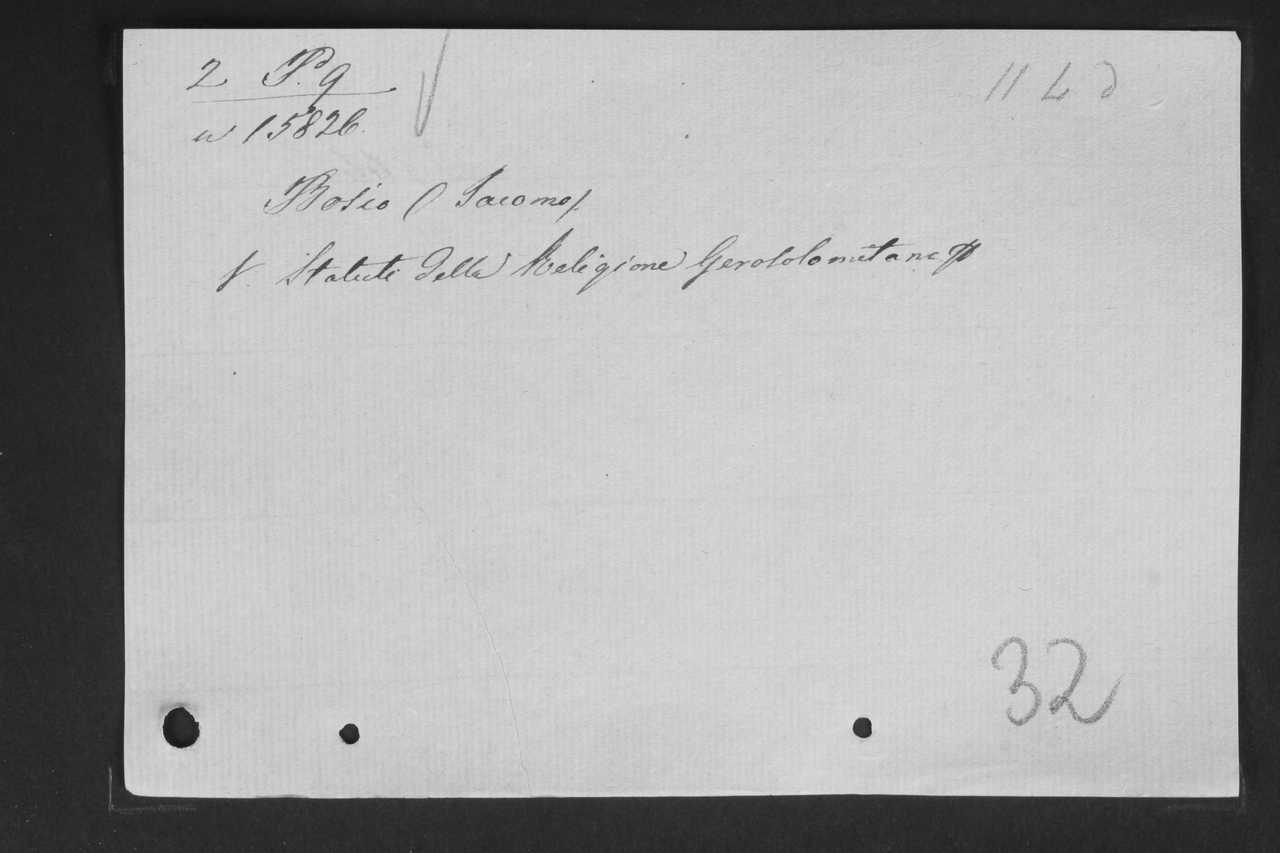 2 P. 9
u 15826.
11 L d
Bosio (Iacomo).
V. Statuti della Religione Gerosolomitana
32